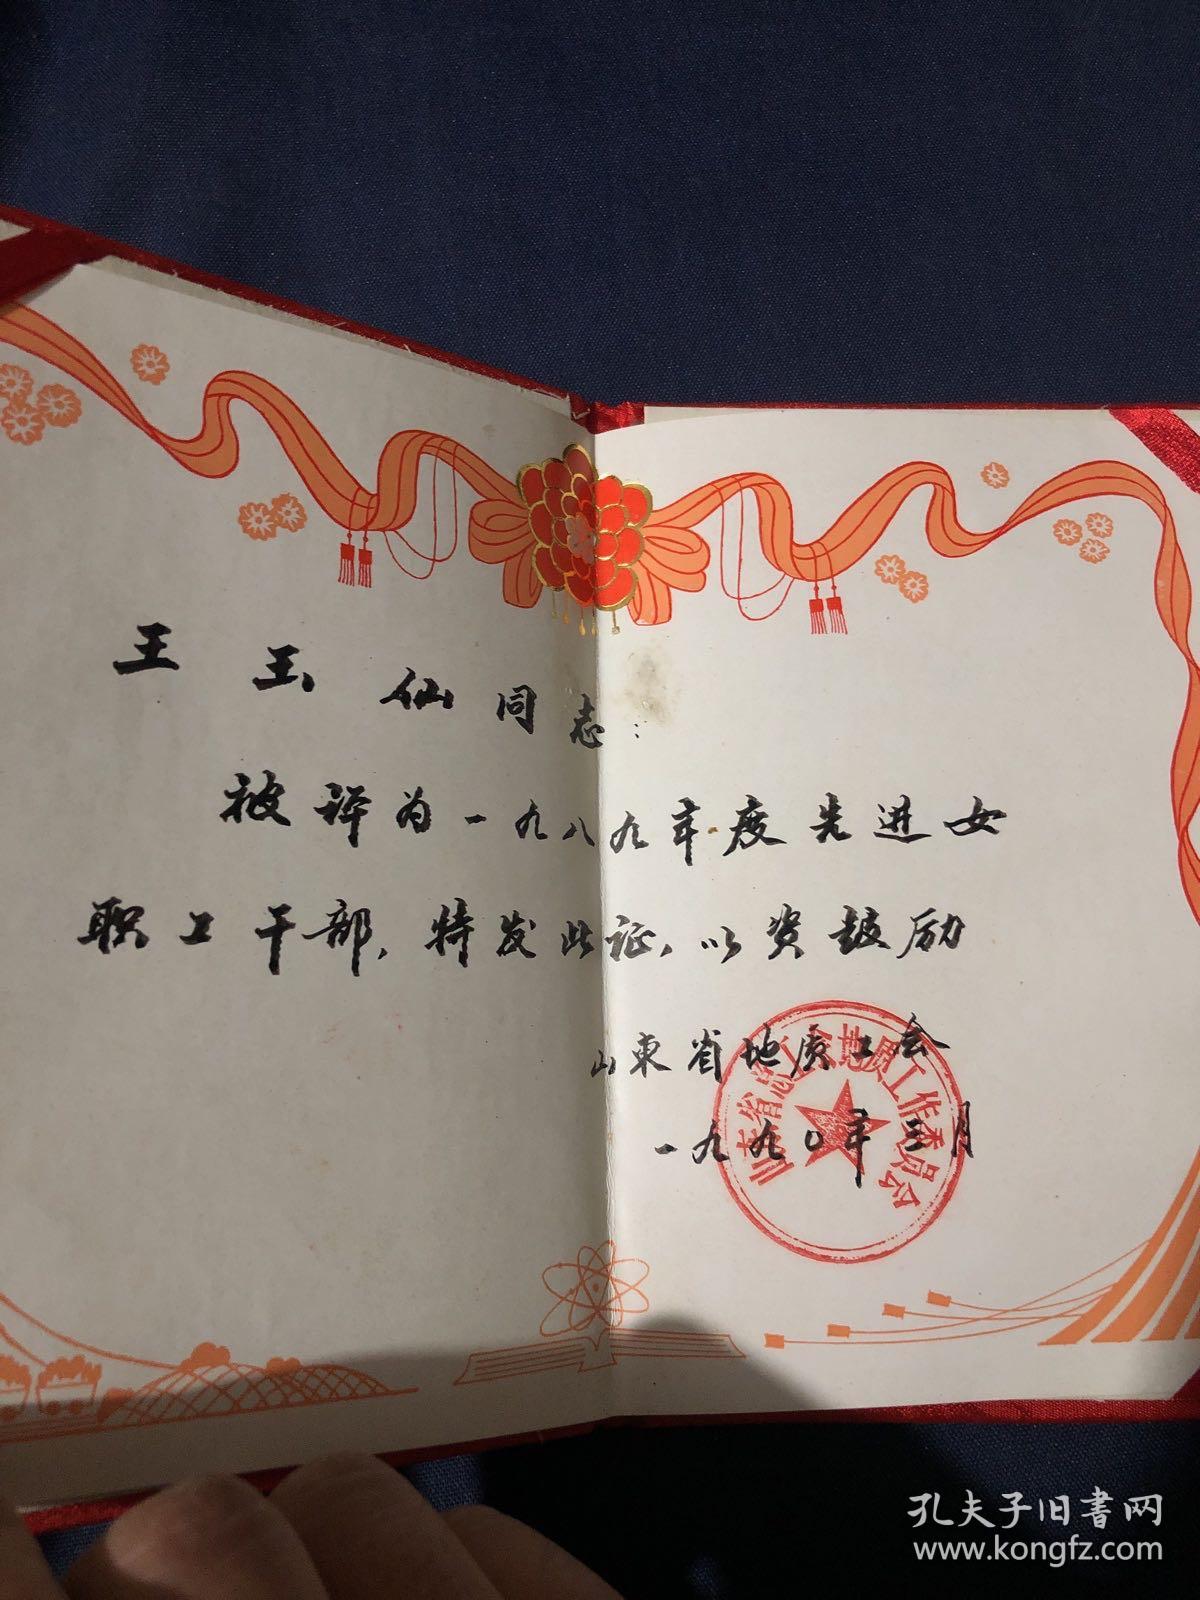 王玉仙同志：
被评为一九八九年度先进女
职工干部，特发此证，以资鼓励
山東省地质工会
一九九〇年三月
山东省总工会地质工作委员会
孔夫子旧書网
www.kongfz.com